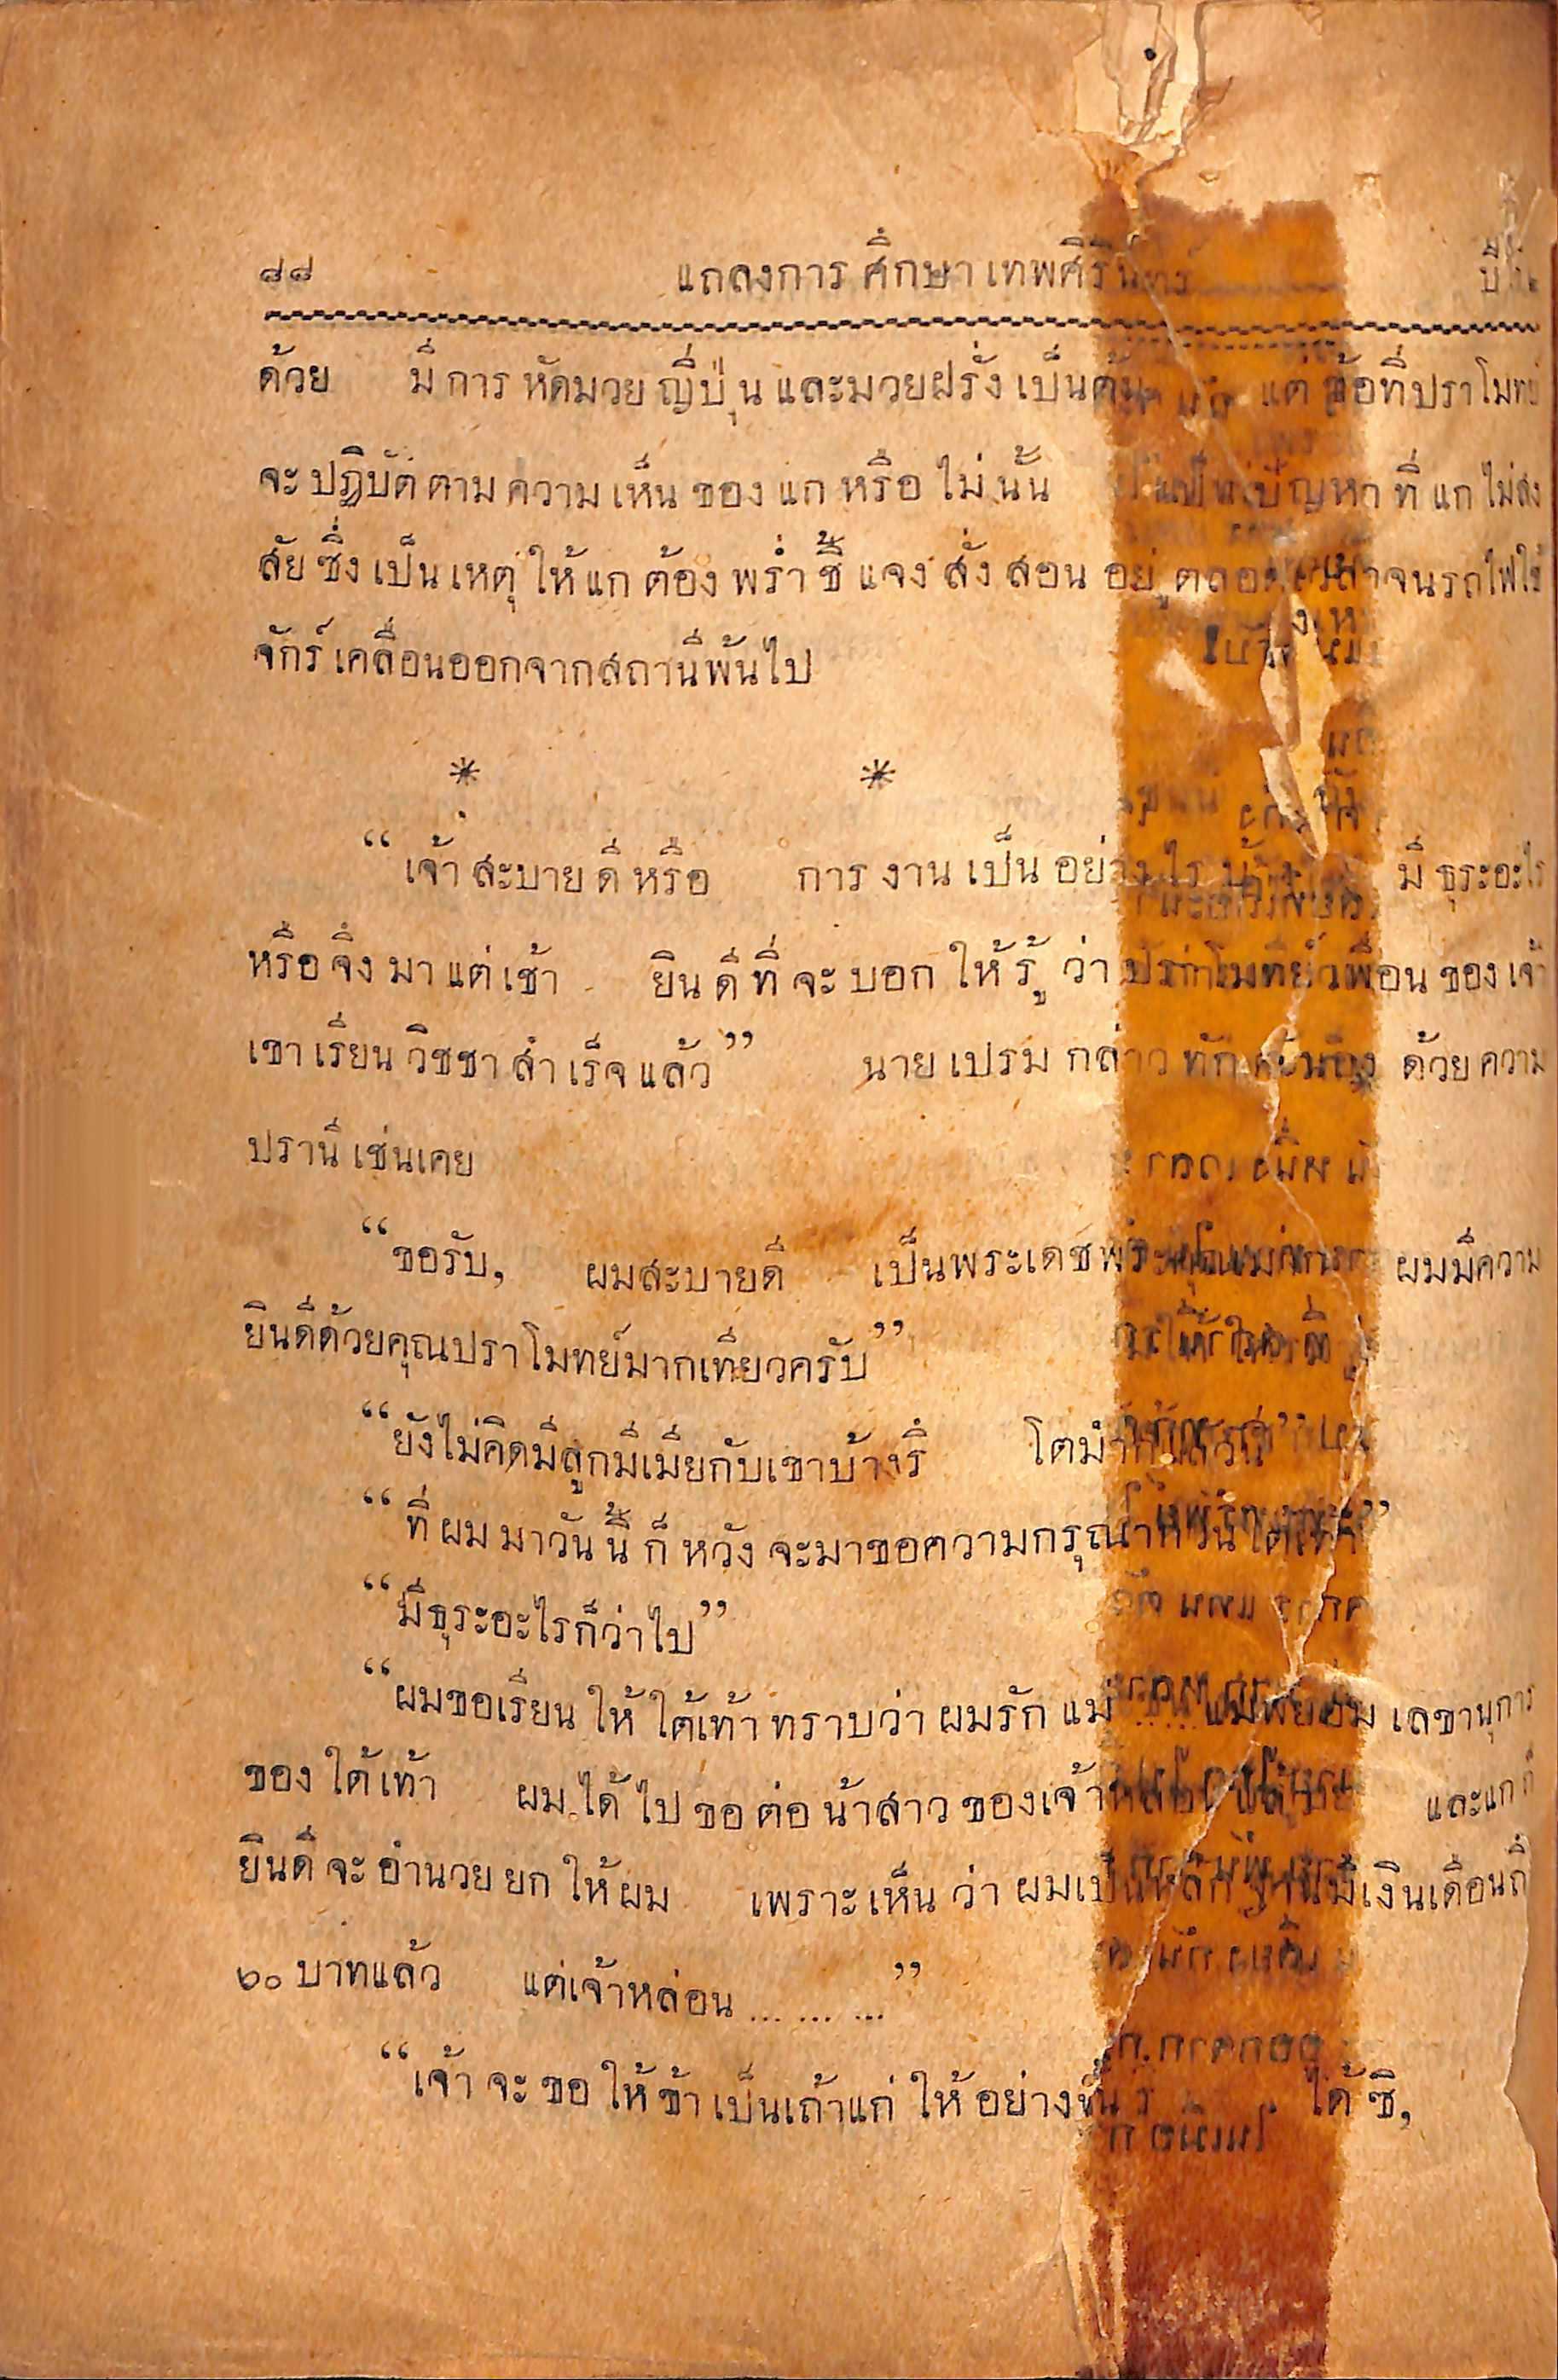 ๘๘ แถลงการศึกษาเทพศิรินทร์ ปีที่
ด้วย มีการหัดมวยญี่ปุ่นและมวยฝรั่งเป็นต้น แต่ข้อที่ปราโมทย์
จะปฏิบัติตามความเห็นของแกหรือไม่นั้น เป็นปัญหาที่แกไม่สง
สัยซึ่งเป็นเหตุให้แกต้องพร่ำชี้แจงสั่งสอนอยู่ตลอดเวลาจนรถไฟใช้
จักร์เคลื่อนออกจากสถานีพ้นไป
* *
“เจ้าสะบายดีหรือ การงานเป็นอย่างไรบ้าง มีธุระอะไร
หรือจึงมาแต่เช้า ยินดีที่จะบอกให้รู้ว่าปราโมทย์เพื่อนของเจ้า
เขาเรียนวิชชาสำเร็จแล้ว” นายเปรมกล่าวทัก ด้วยความ
ปรานีเช่นเคย
“ขอรับ, ผมสะบายดี เป็นพระเดชพระคุณ ผมมีความ
ยินดีด้วยคุณปราโมทย์มากเทียวครับ”
“ยังไม่คิดมีลูกมีเมียกับเขาบ้างรึ โตมากแล้วนี่”
“ที่ผมมาวันนี้ก็หวังจะมาขอความกรุณา ใต้เท้า”
“มีธุระอะไรก็ว่าไป”
“ผมขอเรียนให้ใต้เท้าทราบว่าผมรักแม่......แม่พยอม เลขานุการ
ของใต้เท้า ผมได้ไปขอต่อน้าสาวของเจ้าหล่อนแล้ว และแกก็
ยินดีจะอำนวยยกให้ผม เพราะเห็นว่าผมเป็นหลักฐานมีเงินเดือนถึ
๖๐ บาทแล้ว แต่เจ้าหล่อน.........”
“เจ้าจะขอให้ข้าเป็นเถ้าแก่ให้อย่างนั้นรึ ได้ซิ,